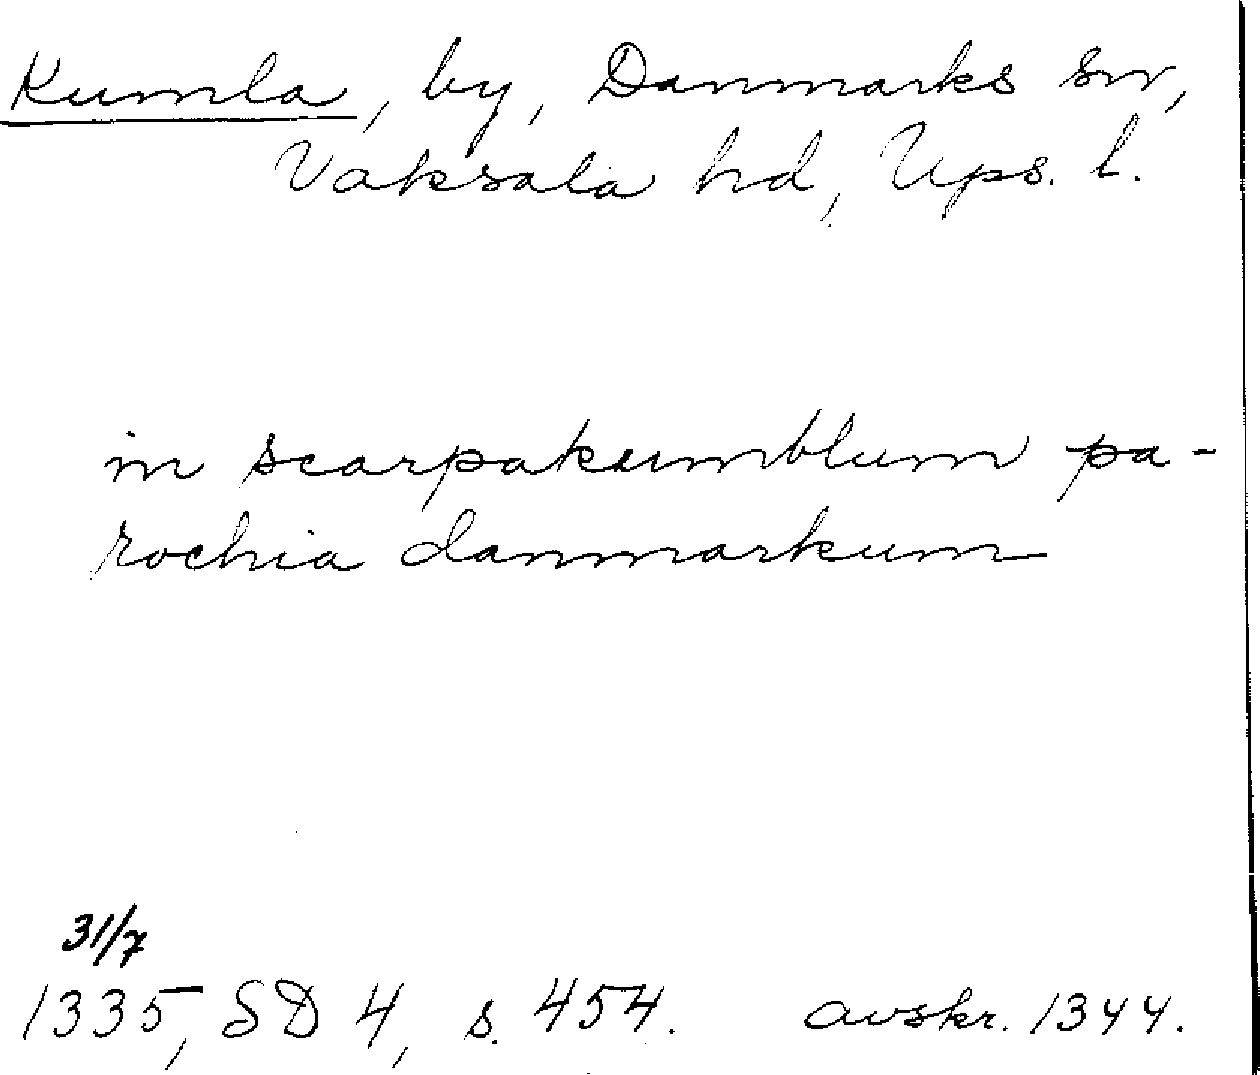 Kumla, by, Danmarks sn,
Vaksala hd, Ups. l.
in scarpakumblum pa-
rochia danmarkum
31/7
1335, SD 4, s. 454. avskr. 1344.